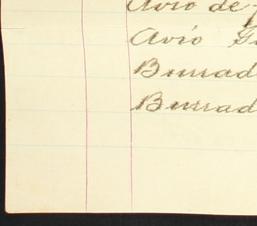 Avío de
Avío
Burrad
Burrad